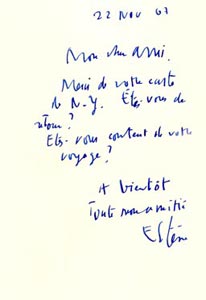 22 NOV 67
Mon cher ami.
Merci de votre carte
de N-Y. Êtes-vous de
retour?
Êtes-vous content de votre
voyage?
A bientôt
Toute mon amitié